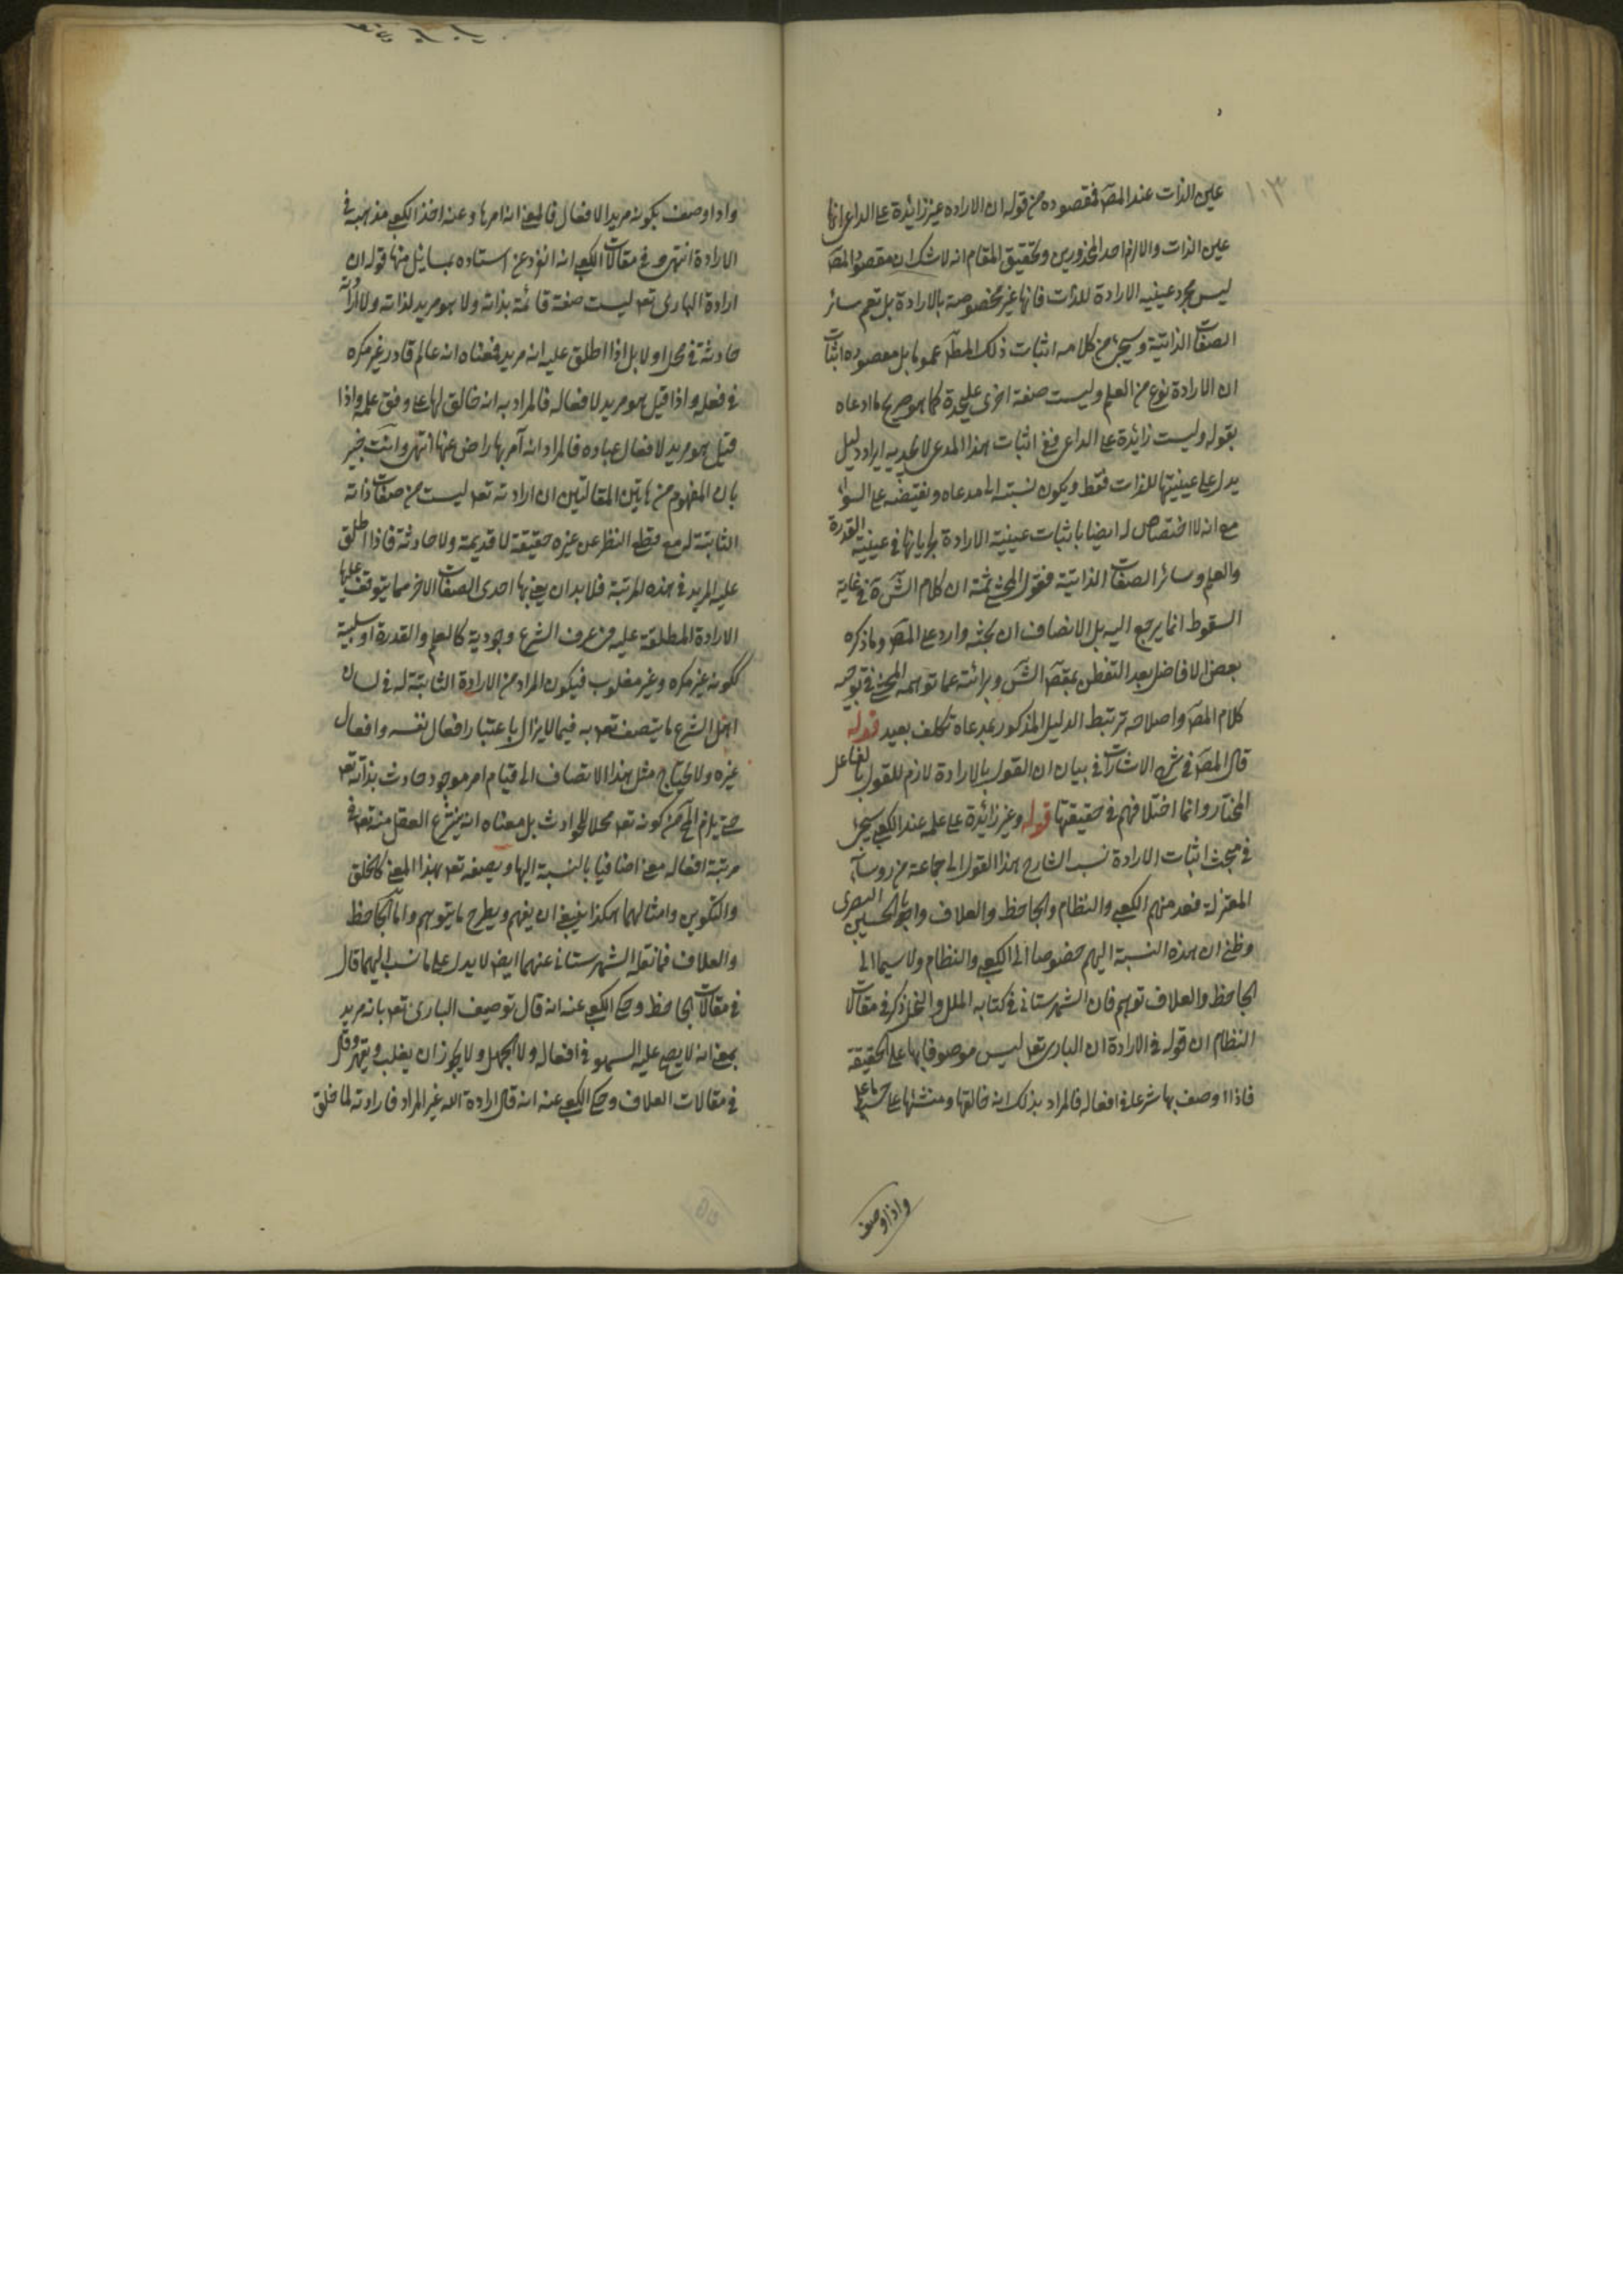 ١٠٣
عين الذات عند المصَ فمقصوده من قوله ان الاراده غير زائدة على الداعى انها
عين الذات والا لزم احد المحذورين وتحقيق المقام انه لا شك ان مقصود المصَ
ليس مجرد عينيه الارادة للذات فانها غير مخصوصة بالارادة بل تعم سائر
الصفات الذاتية وسيجئ من كلامه اثبات ذلك المطَ عموما بل مقصوده اثبات
ان الارادة نوع من العلم وليست صفة اخرى عليحدة كما هو صريح ما ادعاه
بقوله وليست زائدة على الداعى ففى اثبات هذا المدعى لا يجديه ايراد دليل
يدل على عينيتها للذات فقط ويكون نسبته الى مدعاه ونقيضه على السواء
مع انه لا اختصاص له ايضا باثبات عينية الارادة لجريانها فى عينية القدرة
والعلم وسائر الصفات الذاتية فقول المحشى ثمة ان كلام الشَ فى غاية
السقوط انما يرجع اليه بل الانصاف ان بحثه وارد على المصَ وما ذكره
بعض الافاضل بعد التفطن بمقصَ الشَ وبرائته عما توهمه المحشى فى توجيه
كلام المصَ واصلاحه تربتط الدليل المذكور بمدعاه تكلف بعيد قوله
قال المصَ فى شرح الاشارات فى بيان ان القول بالارادة لازم للقول بالفاعل
المختار وانما اختلافهم فى حقيقتها قوله وغير زائدة على علمه عند الكعبى سيجئ
فى مبحث اثبات الارادة نسب الشارح هذا القول الى جماعة من رؤساء
المعتزلة فعد منهم الكعبى والنظام والجاحظ والعلاف وابو الحسين البصرى
وظنى ان هذه النسبة اليهم خصوصا الى الكعبى والنظام ولا سيما الى
الجاحظ والعلاف توهم فان الشهرستانى فى كتابه الملل والنحل ذكر فى مقالات
النظام ان قوله فى الارادة ان البارى تعـ ليس موصوفا بها على الحقيقة
فاذا وصف بها شرعا فى افعاله فالمراد بذلك انه خالقها ومنشئها على حسب ما علم
واذا وصف
واذا وصف بكونه مريدا لافعال فالمعنى انه امر بها وعنه اخذ الكعبى مذهبه فى
الارادة انتهى وفى مقالات الكعبى انه انفرد عن استاده بمسايل منها قوله ان
ارادة البارى تعـ ليست صفة قائمة بذاته ولا هو مريد لذاته ولا ارادته
حادثة فى محل او لا بل اذا اطلق عليه انه مريد فمعناه انه عالم قادر غير مكره
فى فعله واذا قيل هو مريد لافعاله فالمراد به انه خالق لها على وفق علمه واذا
قيل هو مريد لافعال عباده فالمراد انه آمر بها راض عنها انتهى وانت خبير
بان المفهوم من هاتين المقالتين ان ارادته تعـ ليست من صفات ذاته
الثابتة له مع قطع النظر عن غيره حقيقة لا قديمة ولا حادثة فاذا اطلق
عليه المريد فى هذه المرتبة فلا بد ان يعنى بها احدى الصفات الاخر مما يتوقف عليها
الارادة المطلقة عليه من عرف الشرع وجودية كالعلم والقدرة او سلبية
ككونه غير مكره وغير مغلوب فيكون المراد من الارادة الثابتة له فى لسان
اهل الشرع ما يتصف تعـ به فيما لا يزال باعتبار افعال نفسه وافعال
غيره ولا يحتاج مثل هذا الاتصاف الى قيام امر موجود حادث بذاته تعـ
حتى يلزم المحَ من كونه تعـ محلا للحوادث بل معناه انه ينتزع العقل منه تعـ فى
مرتبة افعاله معنى اضافيا بالنسبة اليها ويصفه تعـ بهذا المعنى كالخلق
والتكوين وامثالهما هكذا ينبغى ان يفهم ويطرح ما يتوهم واما الجاحظ
والعلاف فما نقله الشهرستانى عنهما ايضَ لا يدل على ما نسب اليهما قال
فى مقالات الجاحظ وحكى الكعبى عنه انه قال توصيف البارى تعـ بانه مريد
بمعنى انه لا يصح عليه السهو فى افعاله ولا الجهل ولا يجوز ان يغلب ويقهر وقال
فى مقالات العلاف وحكى الكعبى عنه انه قال ارادة الله غير المراد فارادته لما خلق